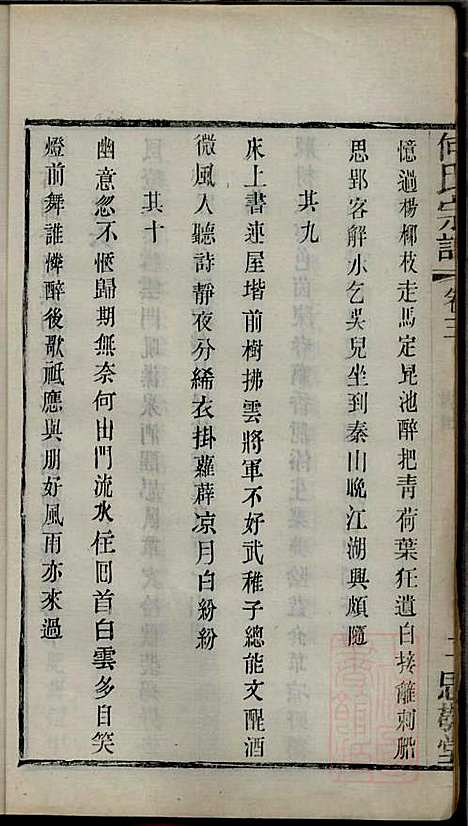 何氏宗譜
卷三
憶過楊柳枝走馬定昆池醉把青荷葉狂遺白接䍦刺船
思郢客解水乞吳兒坐到秦山晚江湖興頗隨
其九
床上書連屋堦前樹拂雲將軍不好武稚子總能文醒酒
微風入聽詩靜夜分絺衣掛蘿薜凉月白紛紛
其十
幽意忽不愜歸期無奈何出門流水住囘首白雲多自笑
燈前舞誰憐醉後歌祗應與朋好風雨亦來過
思敬堂